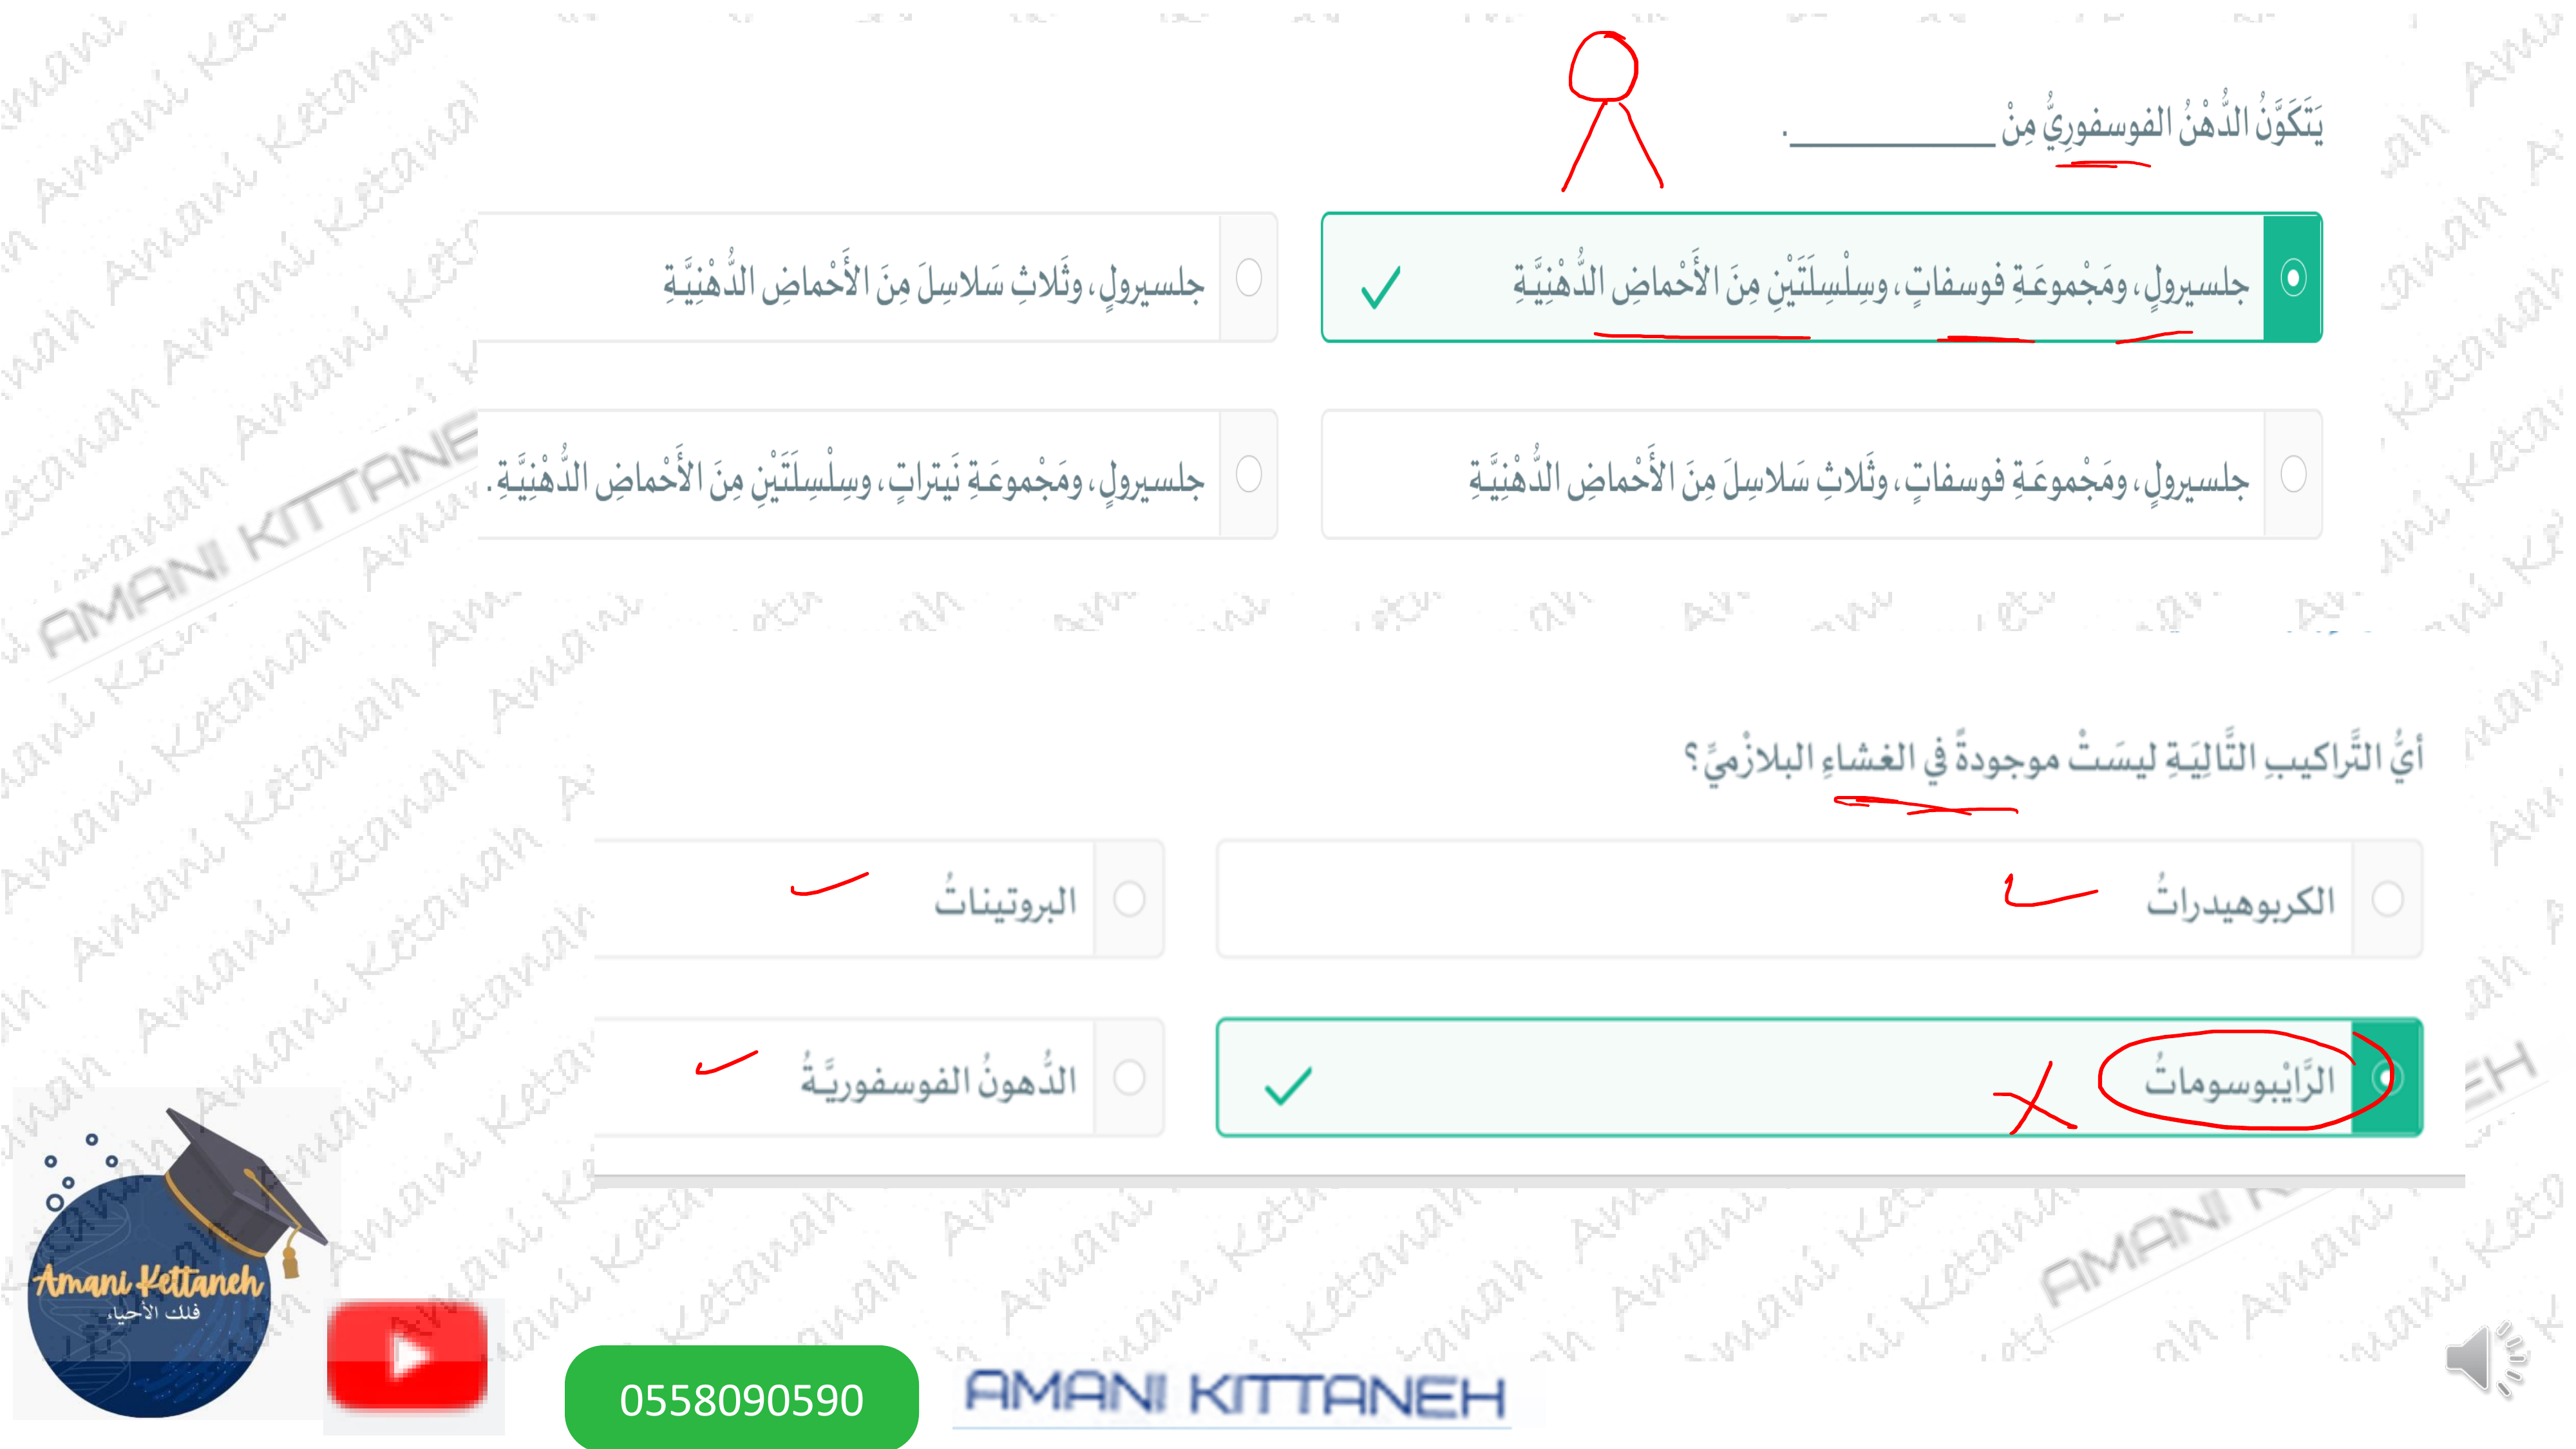 يَتَكَوَّنُ الدُّهْنُ الفوسفورِيُّ مِنْ ____________.
جلسيرولٍ، ومَجْموعَةِ فوسفاتٍ، وسِلْسِلَتَيْنِ مِنَ الأَحْماضِ الدُّهْنِيَّةِ
جلسيرولٍ، وثَلاثِ سَلاسِلَ مِنَ الأَحْماضِ الدُّهْنِيَّةِ
جلسيرولٍ، ومَجْموعَةِ فوسفاتٍ، وثَلاثِ سَلاسِلَ مِنَ الأَحْماضِ الدُّهْنِيَّةِ
جلسيرولٍ، ومَجْموعَةِ نَيتراتٍ، وسِلْسِلَتَيْنِ مِنَ الأَحْماضِ الدُّهْنِيَّةِ.
أيُّ التَّراكيبِ التَّالِيَةِ ليسَتْ موجودةً في الغشاءِ البلازْميِّ؟
الكربوهيدراتُ
البروتيناتُ
الرَّايْبوسوماتُ
الدُّهونُ الفوسفوريَّةُ
Amani Kettaneh
فلك الأحياء
0558090590
AMANI KITTANEH